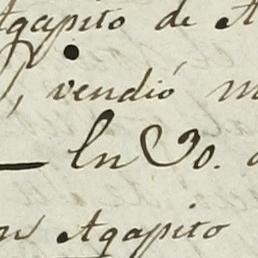 Agapito de A
, vendió m
— En 30. d
n Agapito